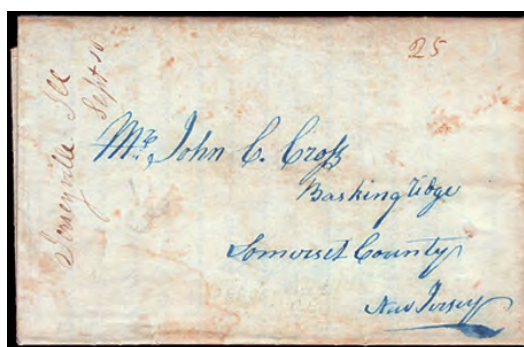 Jerseyville Ill
Sept 10
25
Mr. John C. Cross
Baskingridge
Somerset County
New Jersey